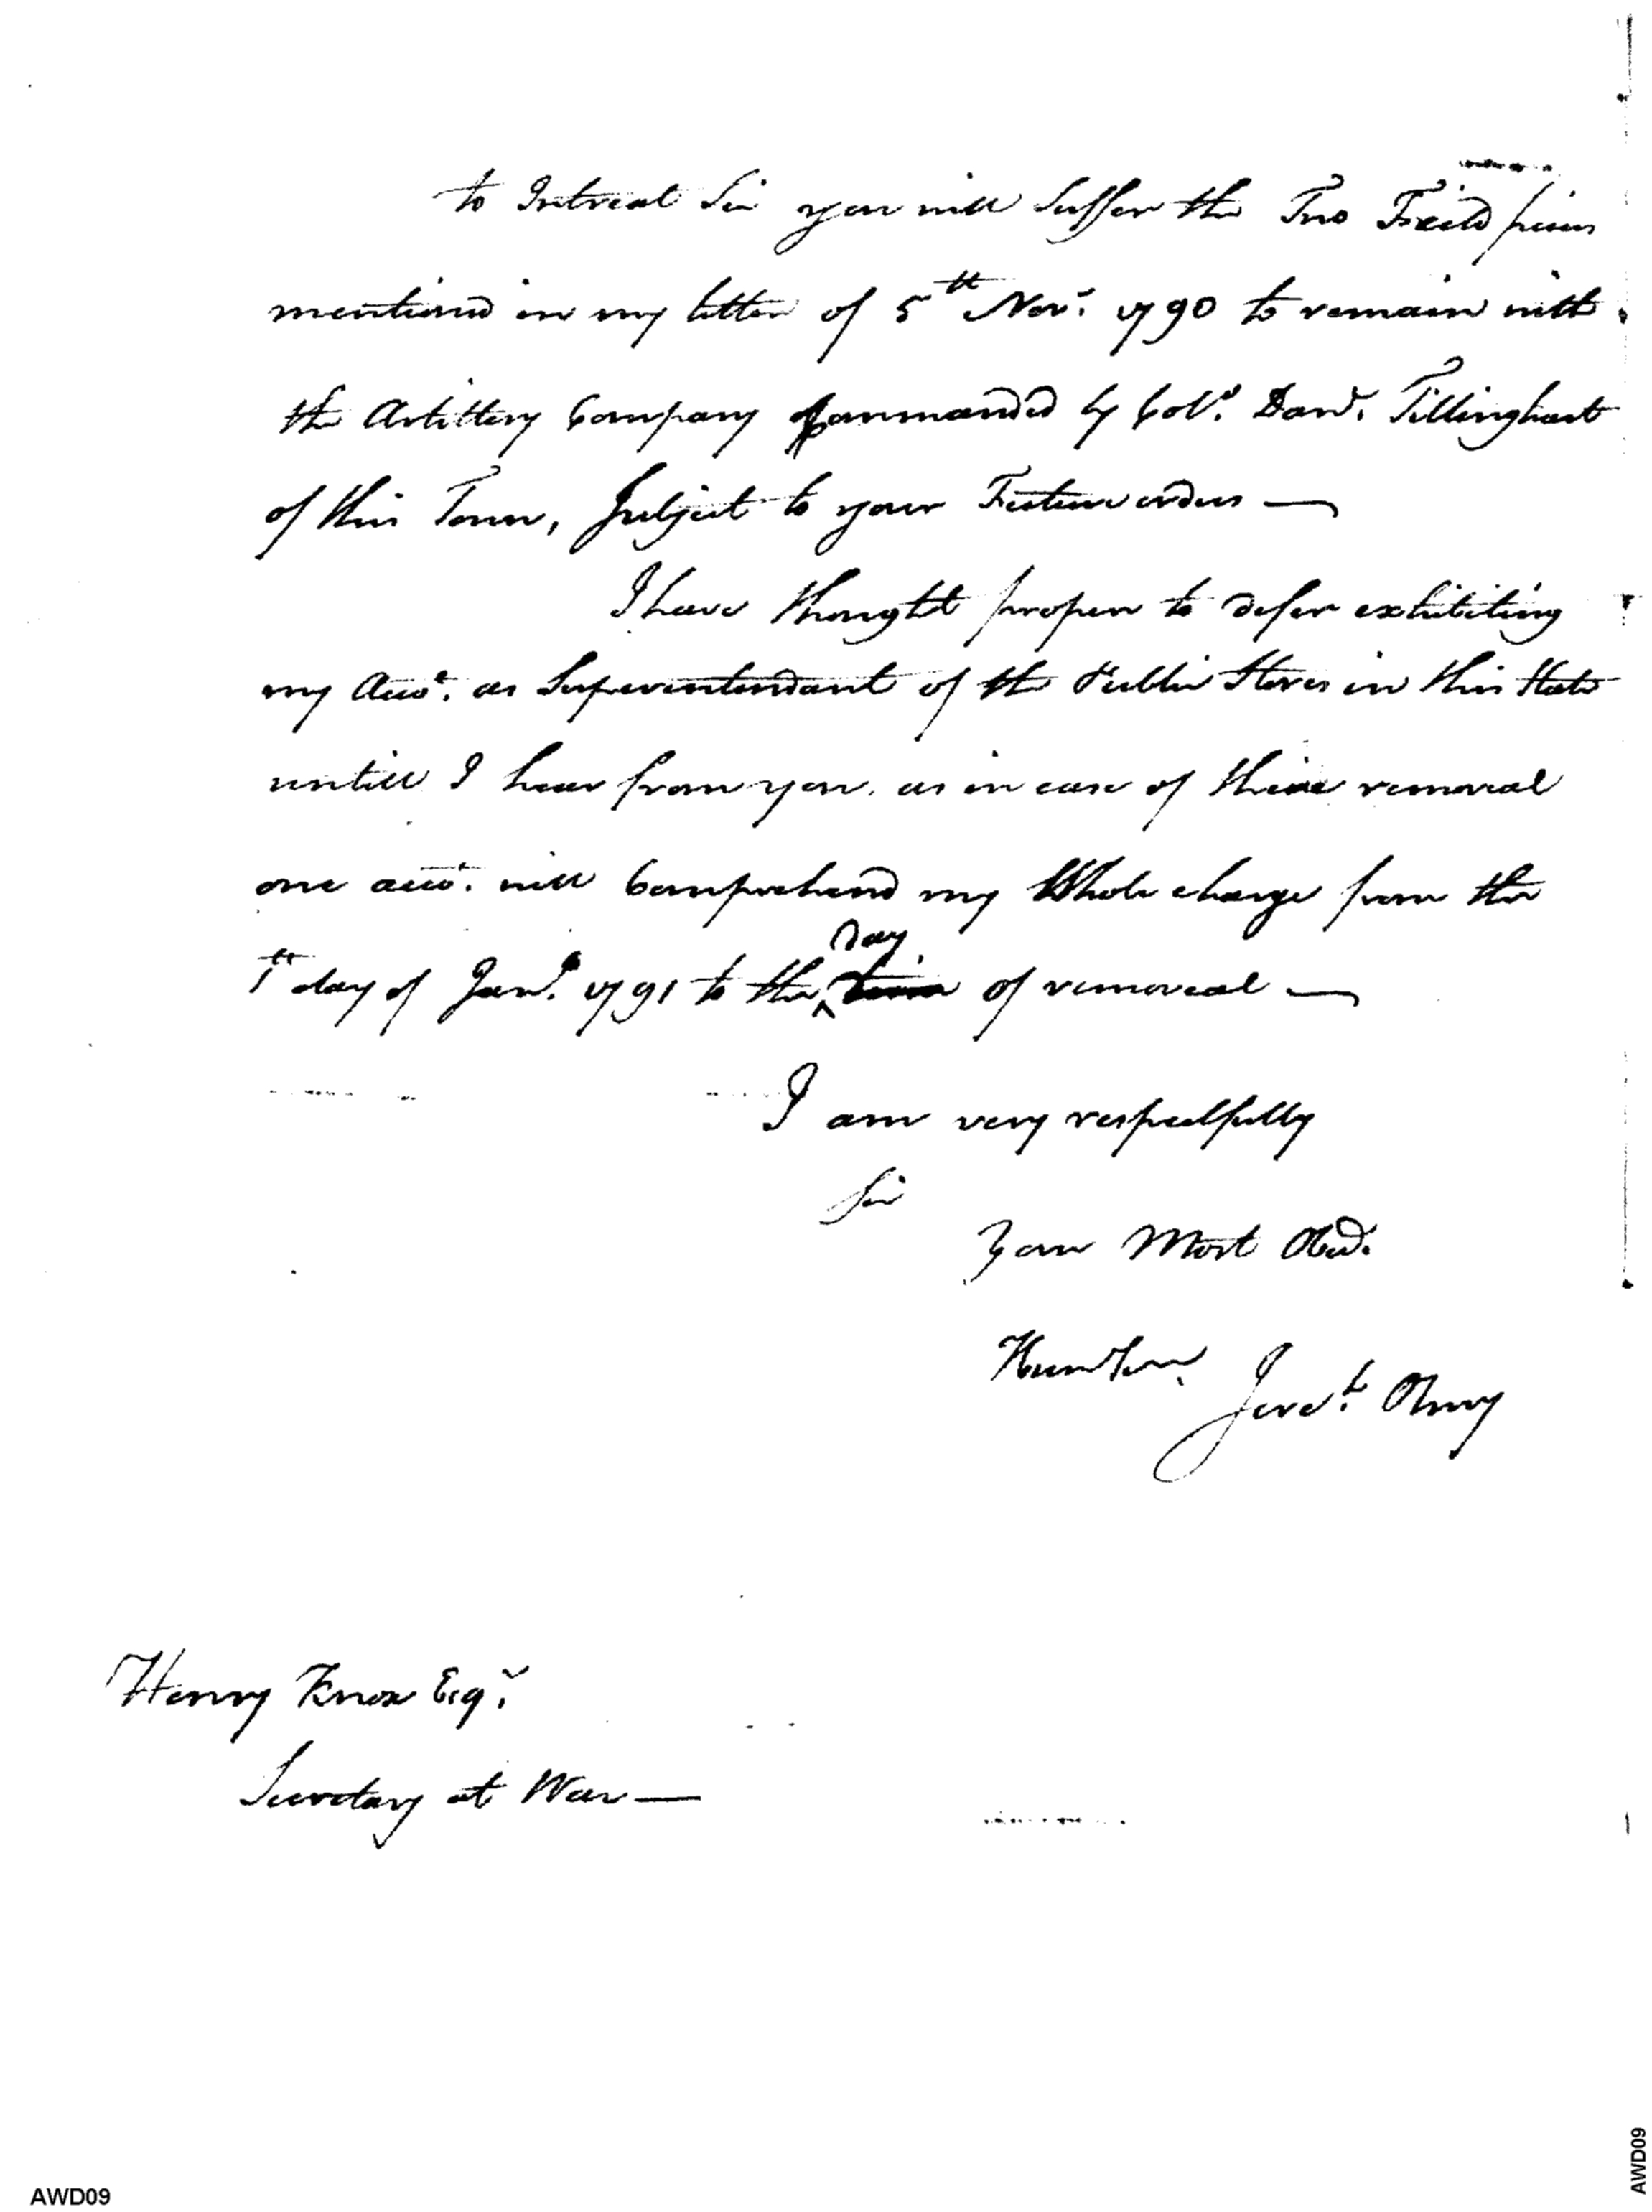 to Intreat Sir you will Suffer the Two Feild pieces
mentioned in my letter of 5th Novr. 1790 to remain with
the Artillery Company Commanded by Colo. Danl. Tillinghast
of this Town, Subject to your Future orders —
I have thought proper to defer exhibiting
my Accot. as Superentendant of the Public Stores in this State
untill I hear from you, as in case of their removal
one acco. will Comprehend my Whole charge from the
1st day of Jany. 1791 to the Day time of removeal —
I am very respectfully
Sir
Your Most Obed.
Hum Ser.
Jereh. Olney
Henry Knox Esqr.
Secretary at War —
AWD09
AWD09